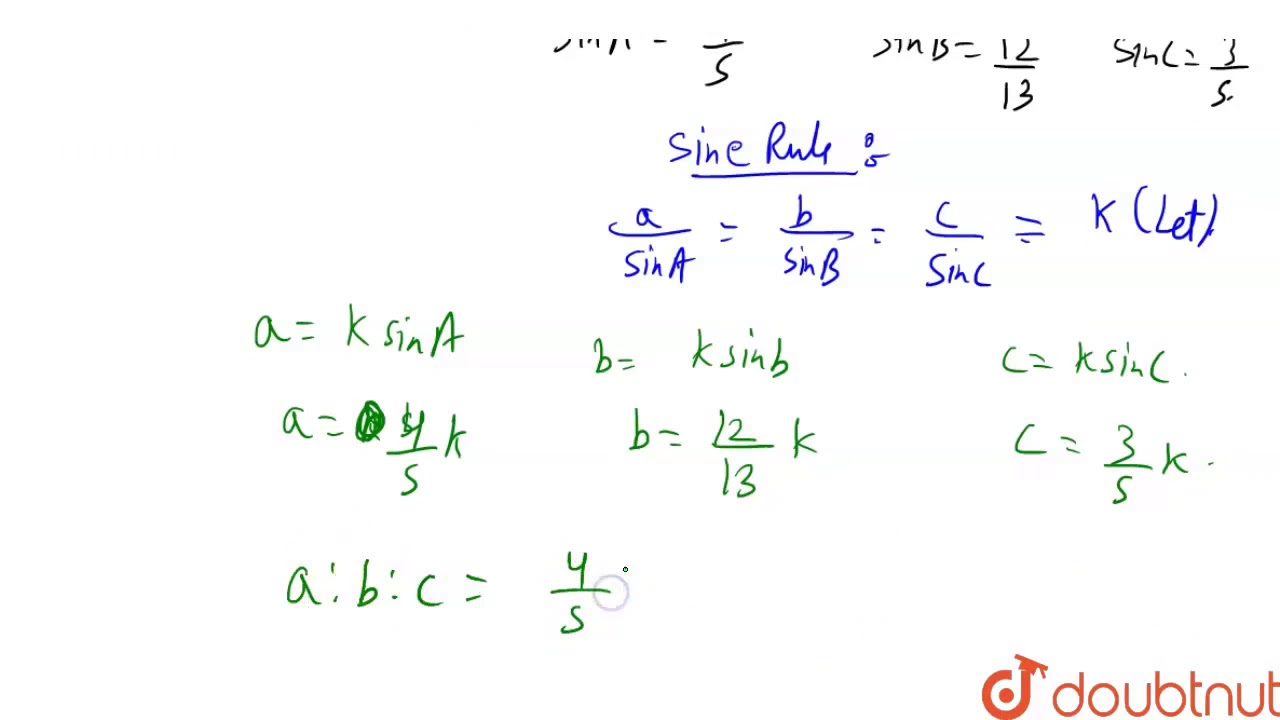 sin A = 4/5 sin B = 12/13 sin C = 3/5.
Sine Rule :
a/sin A = b/sin B = c/sin C = K (Let).
a = K sin A b = K sin b c = K sin C.
a = 4/5 K b = 12/13 K c = 3/5 K.
a : b : c = 4/5
doubtnut